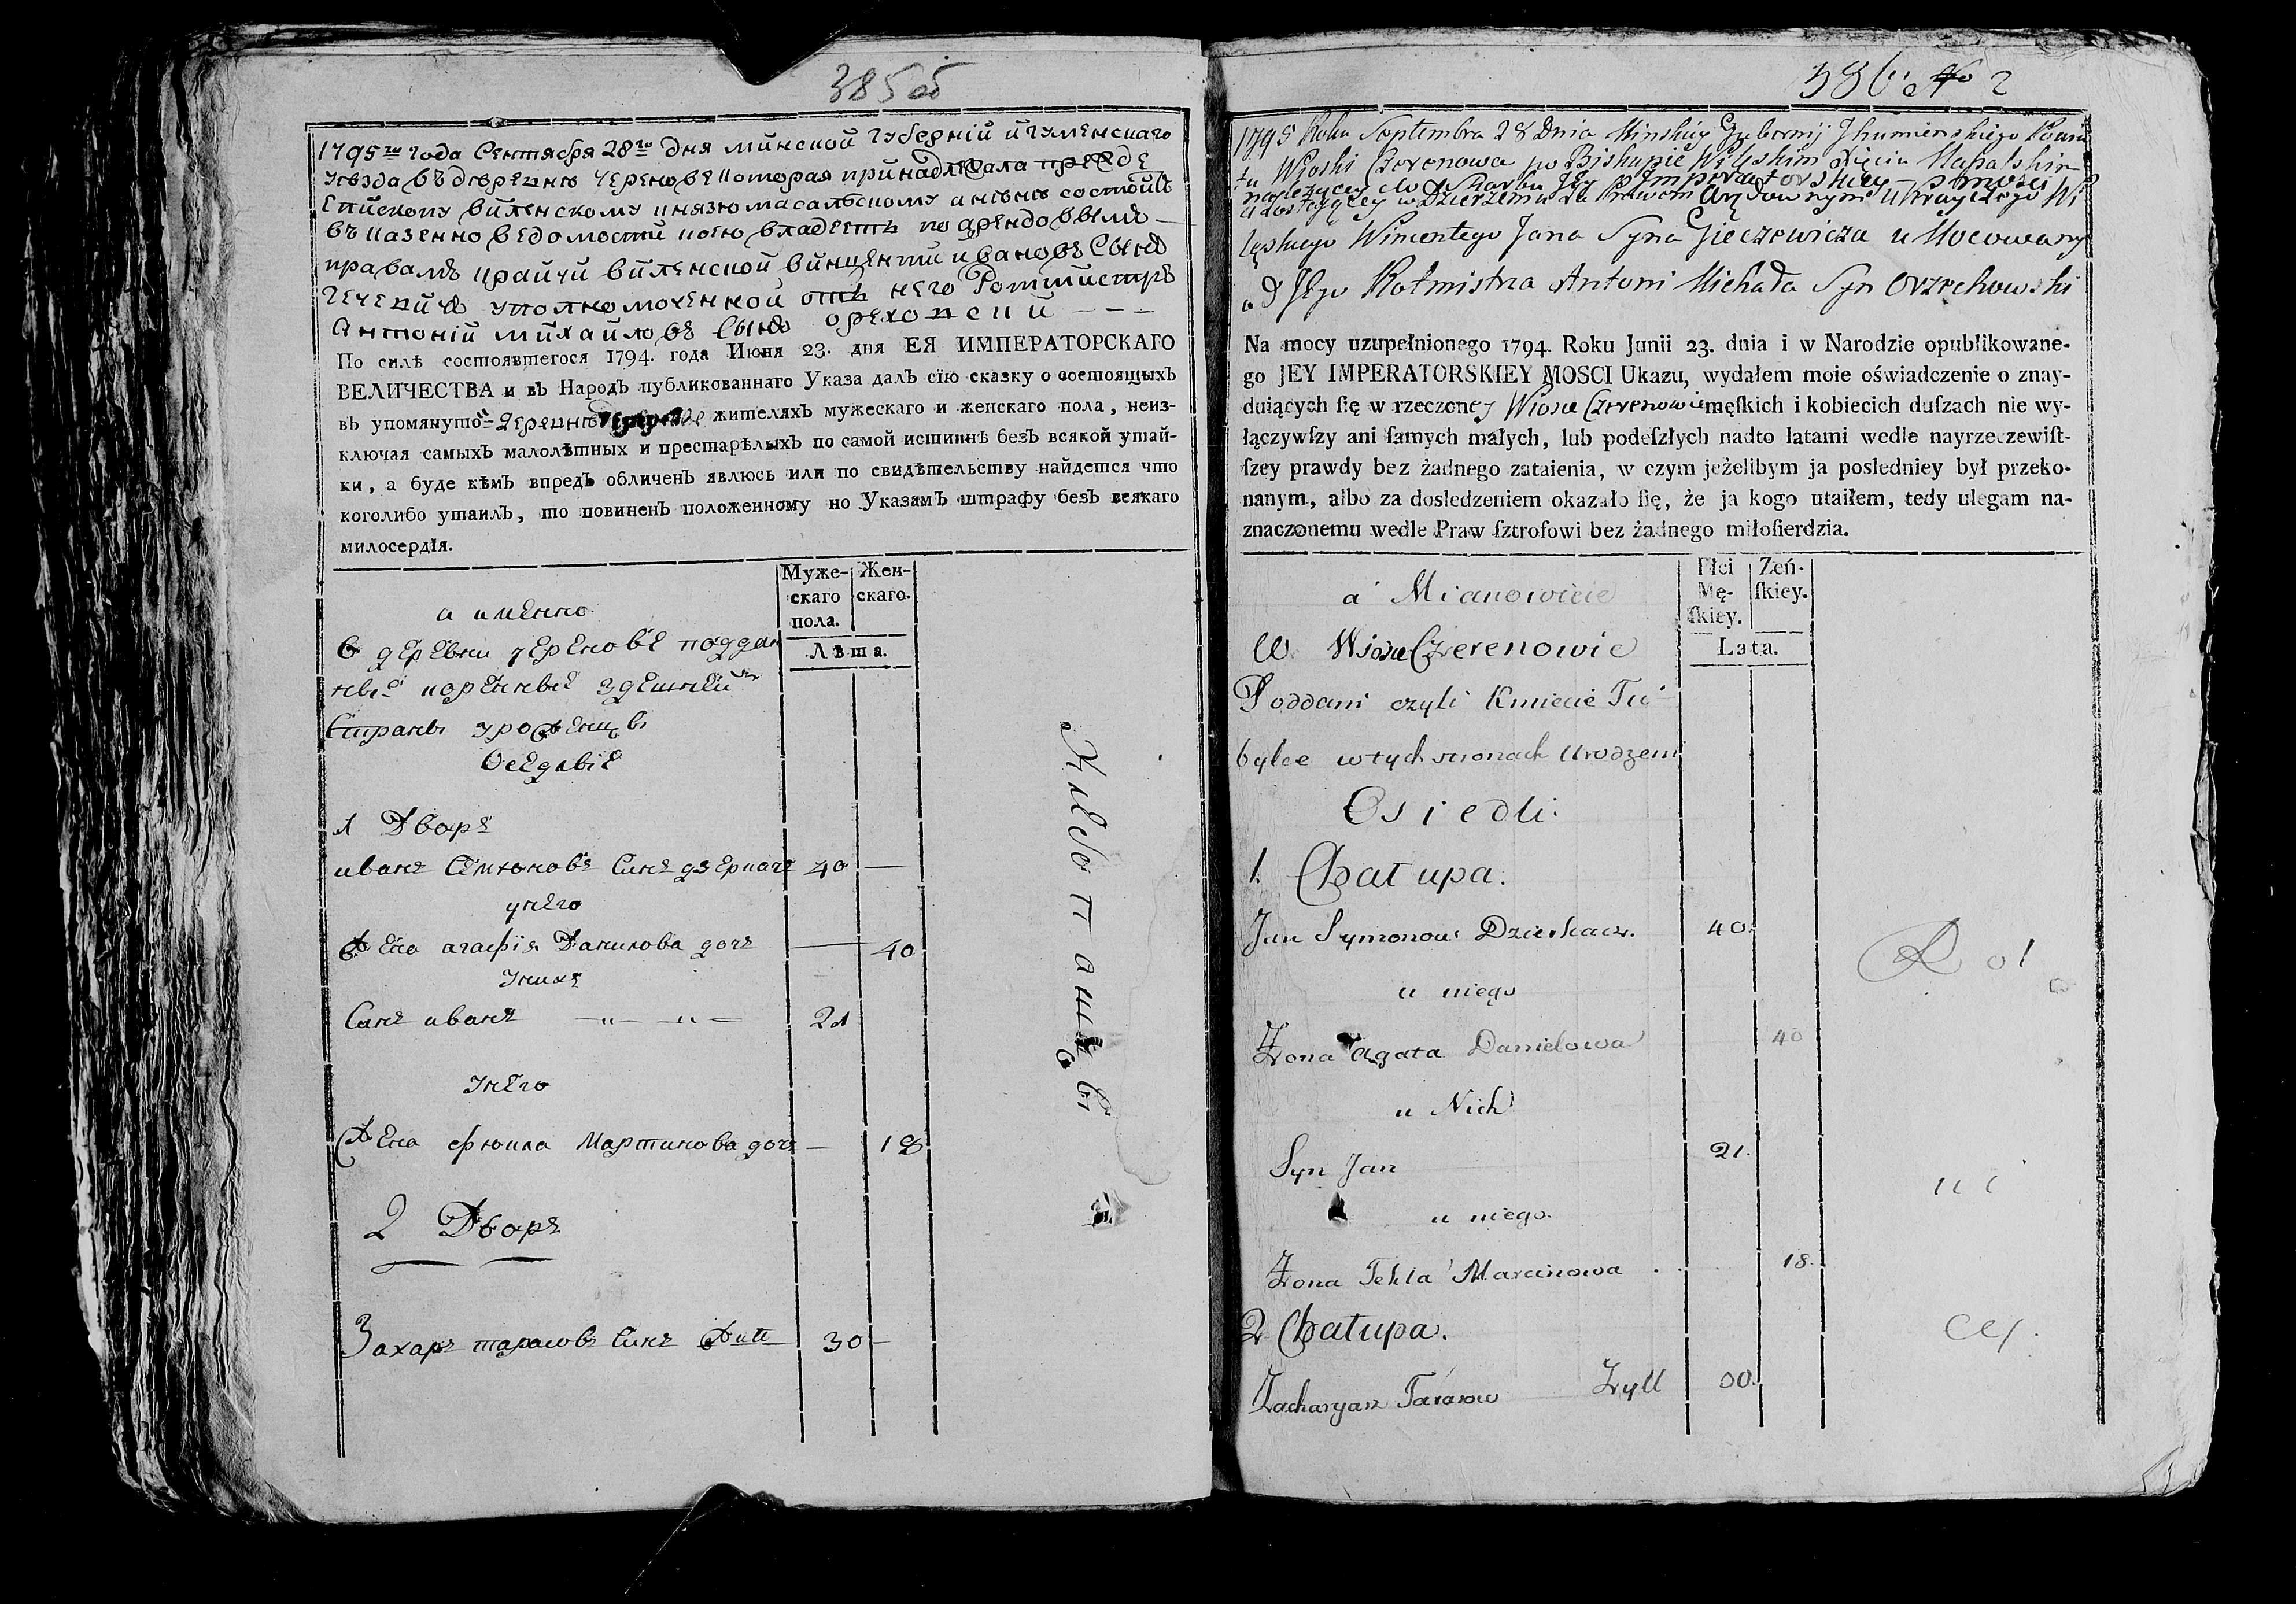 385 об
1795 го года Сентября 28 го дня минской губерніи игуменскаго
уезда въ деревню черенове которая принадлежала прежде
Епископу виленскому князю масальскому а ныне состоитъ
въ казенно ведомости коею владеетъ по арендовнымъ
правамъ крайчи виленской винценти ивановъ Сынъ
гечевичъ уполномоченной отъ него Ротмистръ
Антоній михайловъ Сынъ ореховский
По силѣ состоявшегося 1794. года Июня 23. дня ЕЯ ИМПЕРАТОРСКАГО
ВЕЛИЧЕСТВА и въ Народъ публикованнаго Указа далъ сїю сказку о состоящыхъ
въ упомянуто жителяхъ мужескаго и женскаго пола, неиз-
ключая самыхъ малолѣтныхъ и престарѣлыхъ по самой истиннѣ безъ всякой утай-
ки, а буде кѣмъ впредъ обличенъ явлюсь или по свидѣтельству найдется что
коголибо утаилъ, то повиненъ положенному по Указамъ штрафу безъ всякаго
милосердїя.
Муже-
скаго
пола.
Жен-
скаго.
Лѣта.
а именно
в деревни черенове поддан
ные коренные здешней
Страны уроженцы
Оседлые
1 Дворъ
иванъ Семионовъ Синъ дзеркачъ 40 —
унего
жена агафія Данилова дочъ — 40
Унихъ
Синъ иванъ — " — " — 21
Унего
Жена фюкла Мартинова дочъ — 18
2 Дворъ
Захаръ тарасовъ Синъ жил 30 —
386 2
1795 Roku Septembra 28 Dnia Minskiey Gubernij Jhumienskiego Powia
tu Wioski Czerenowa po Biskupie Wileskim Xięciu Massalskim
należącey do Skarbu Jey Imperatorskiey
Wincentego Jana Syna Gieczewicza uMocowany
od Jego Rotmistrza Antoni Michała Syn Orzechowski
Na mocy uzupełnionego 1794. Roku Junii 23. dnia i w Narodzie opublikowane-
go JEY IMPERATORSKIEY MOSCI Ukazu, wydałem moie oświadczenie o znay-
duiących ſię w rzeczoney Wiosce Czerenowie męſkich i kobiecich duſzach nie wy-
łączywſzy ani ſamych małych, lub podeſzłych nadto latami wedle nayrzeczewiſt-
ſzey prawdy bez żadnego zataienia, w czym jeżelibym ja posledniey był przeko-
nanym, albo za dosledzeniem okazało ſię, że ja kogo utaiłem, tedy ulegam na-
znaczonemu wedle Praw ſztrofowi bez żadnego miłoſierdzia.
Płci
Mę-
ſkiey.
Żeń-
ſkiey.
Lata.
a Mianowicie
w Wiosce Czerenowie
Poddani czyli Kmiecie Tu-
bylce w tych stronach Urodzeni
Osiedli:
1. Chałupa.
Jan Symonow Dzierkacz. 40.
u niego
Żona Agata Danielowa 40
u Nich
Syn Jan 21.
u niego.
Żona Tekla Marcinowa 18.
2 Chałupa.
Zacharyasz Tarasow Żyll 30.
Rol
ni
cy.